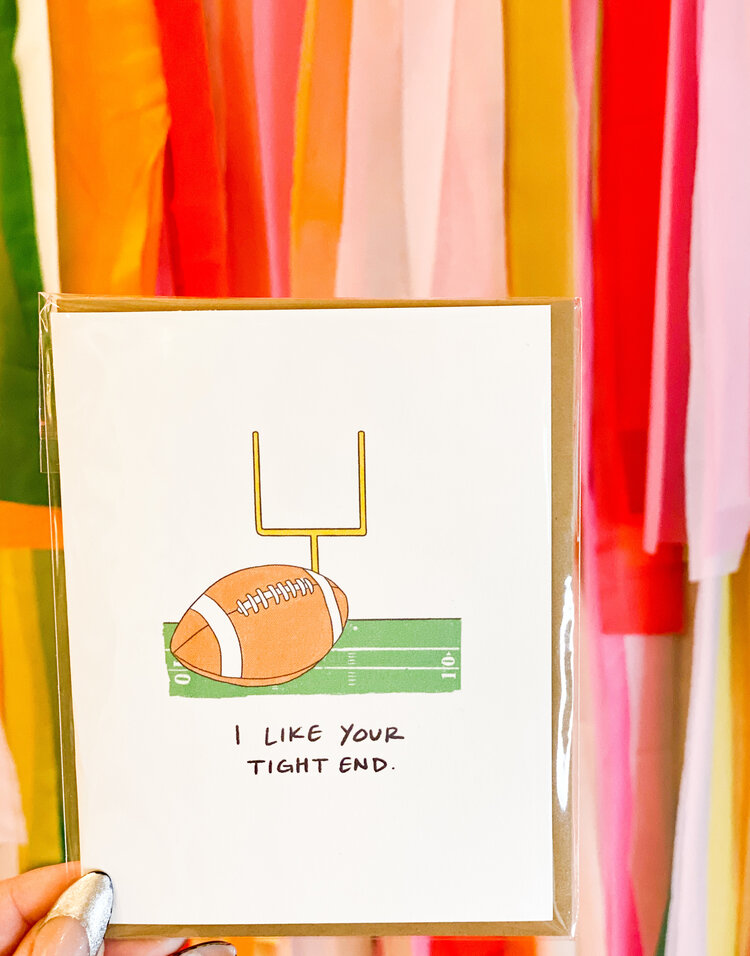 0
10
I LIKE YOUR
TIGHT END.